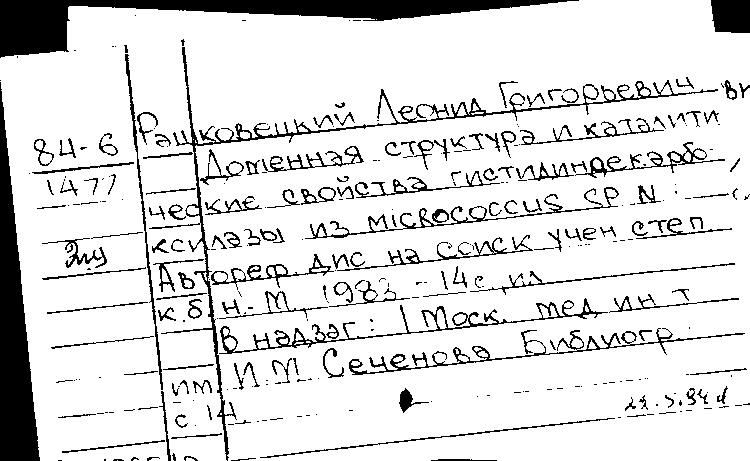 84-6
1477
2из
Рашковецкий, Леонид Григорьевич
Доменная структура и каталити
ческие свойства гистидиндекарбо-
ксилазы из MICROCOCCUS SP N:
Автореф. дис на соиск учен степ
к.б.н.-М., 1983 - 14с, ил
В надзаг: 1 Моск. мед ин т
им. И М Сеченова Библиогр.
с. 14.